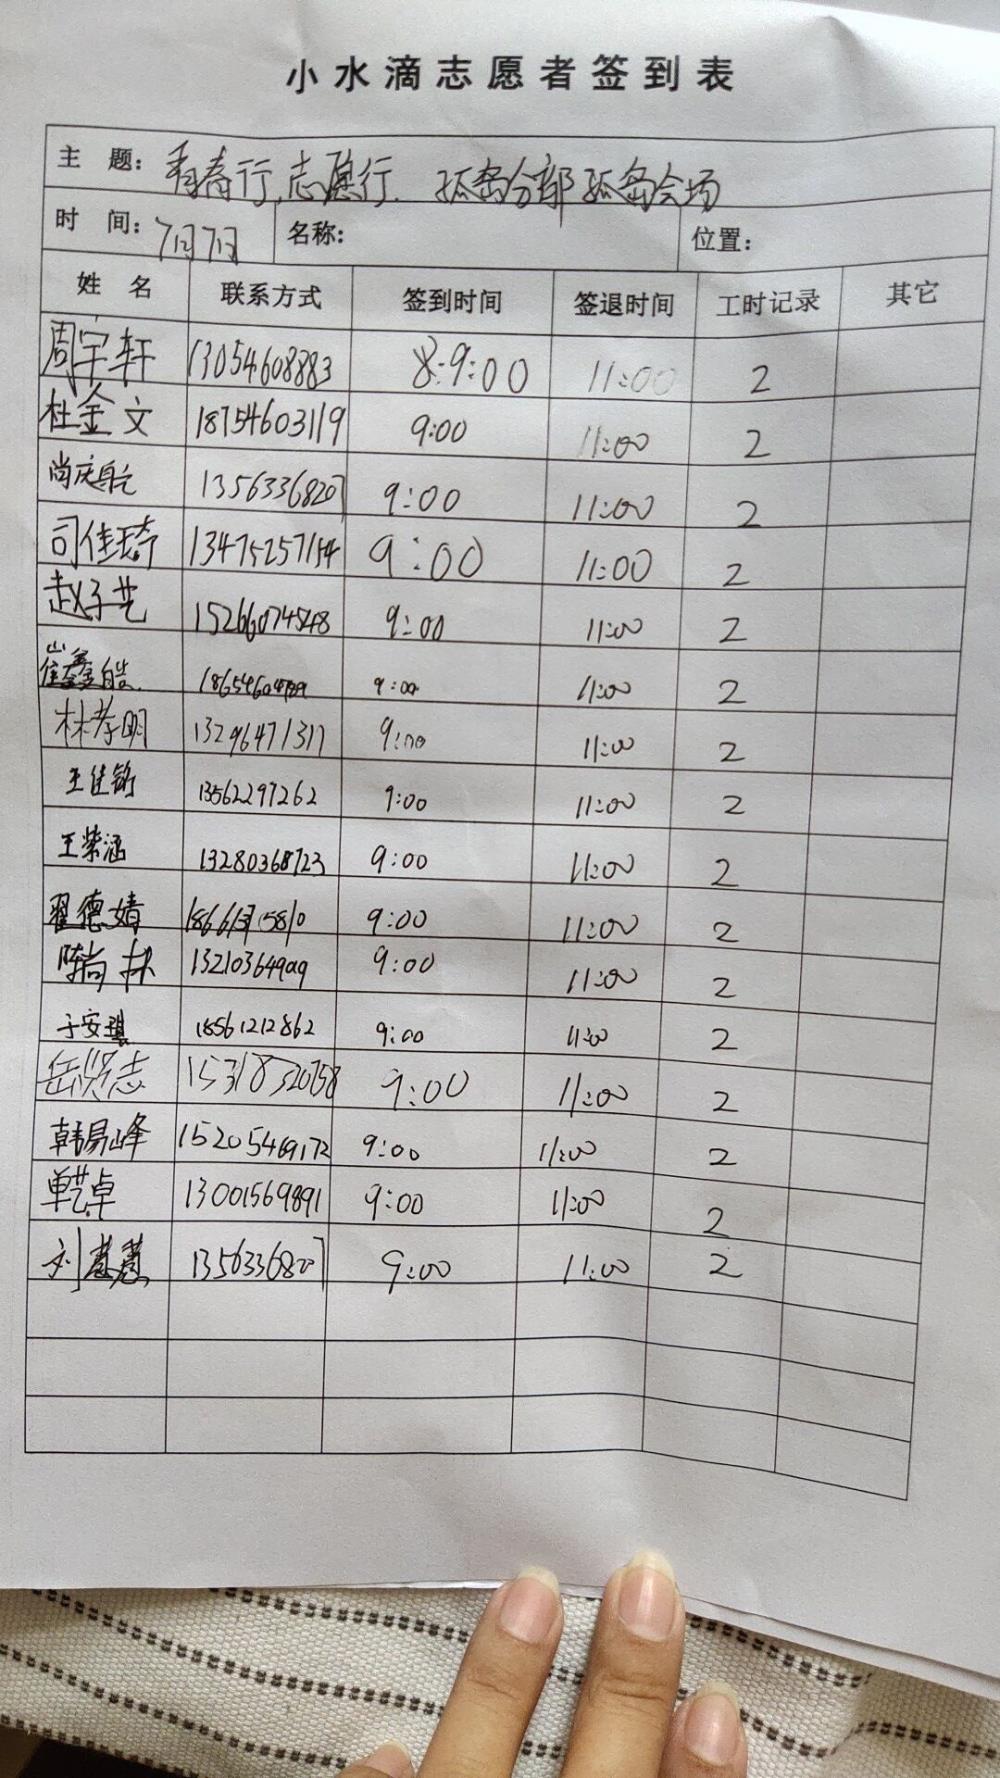 小水滴志愿者签到表
主 题: 青春行,志愿行. 孤岛分部孤岛会场
时 间: 7月7日 名称: 位置:
姓 名 联系方式 签到时间 签退时间 工时记录 其它
周宇轩 13054608883 8:9:00 11:00 2
杜金文 18754603119 9:00 11:00 2
尚庆航 13563368207 9:00 11:00 2
司佳琦 13475257154 9:00 11:00 2
赵子艺 9:00 11:00 2
崔鑫皓 9:00 11:00 2
林孝明 13296471317 9:00 11:00 2
王佳铭 13562297262 9:00 11:00 2
王紫涵 13280368723 9:00 11:00 2
翟德婧 9:00 11:00 2
陈尚林 9:00 11:00 2
于安琪 18561212862 9:00 11:00 2
岳贤志 9:00 11:00 2
韩易峰 15205469172 9:00 11:00 2
单艺卓 13001569891 9:00 11:00 2
刘慧慧 9:00 11:00 2